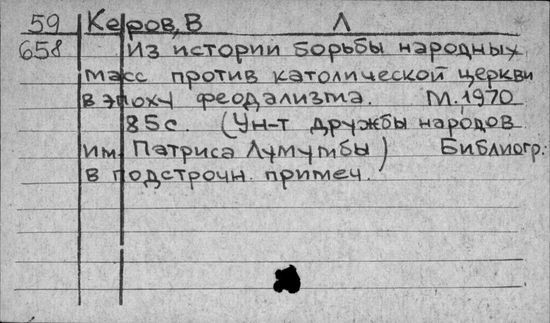 59 Керов, В Л
658 Из истории борьбы народных
масс против католической церкви
в эпоху феодализма. М. 1970
85с. (Ун-т дружбы народов
им. Патриса Лумумбы) Библиогр.
в подстрочн. примеч.